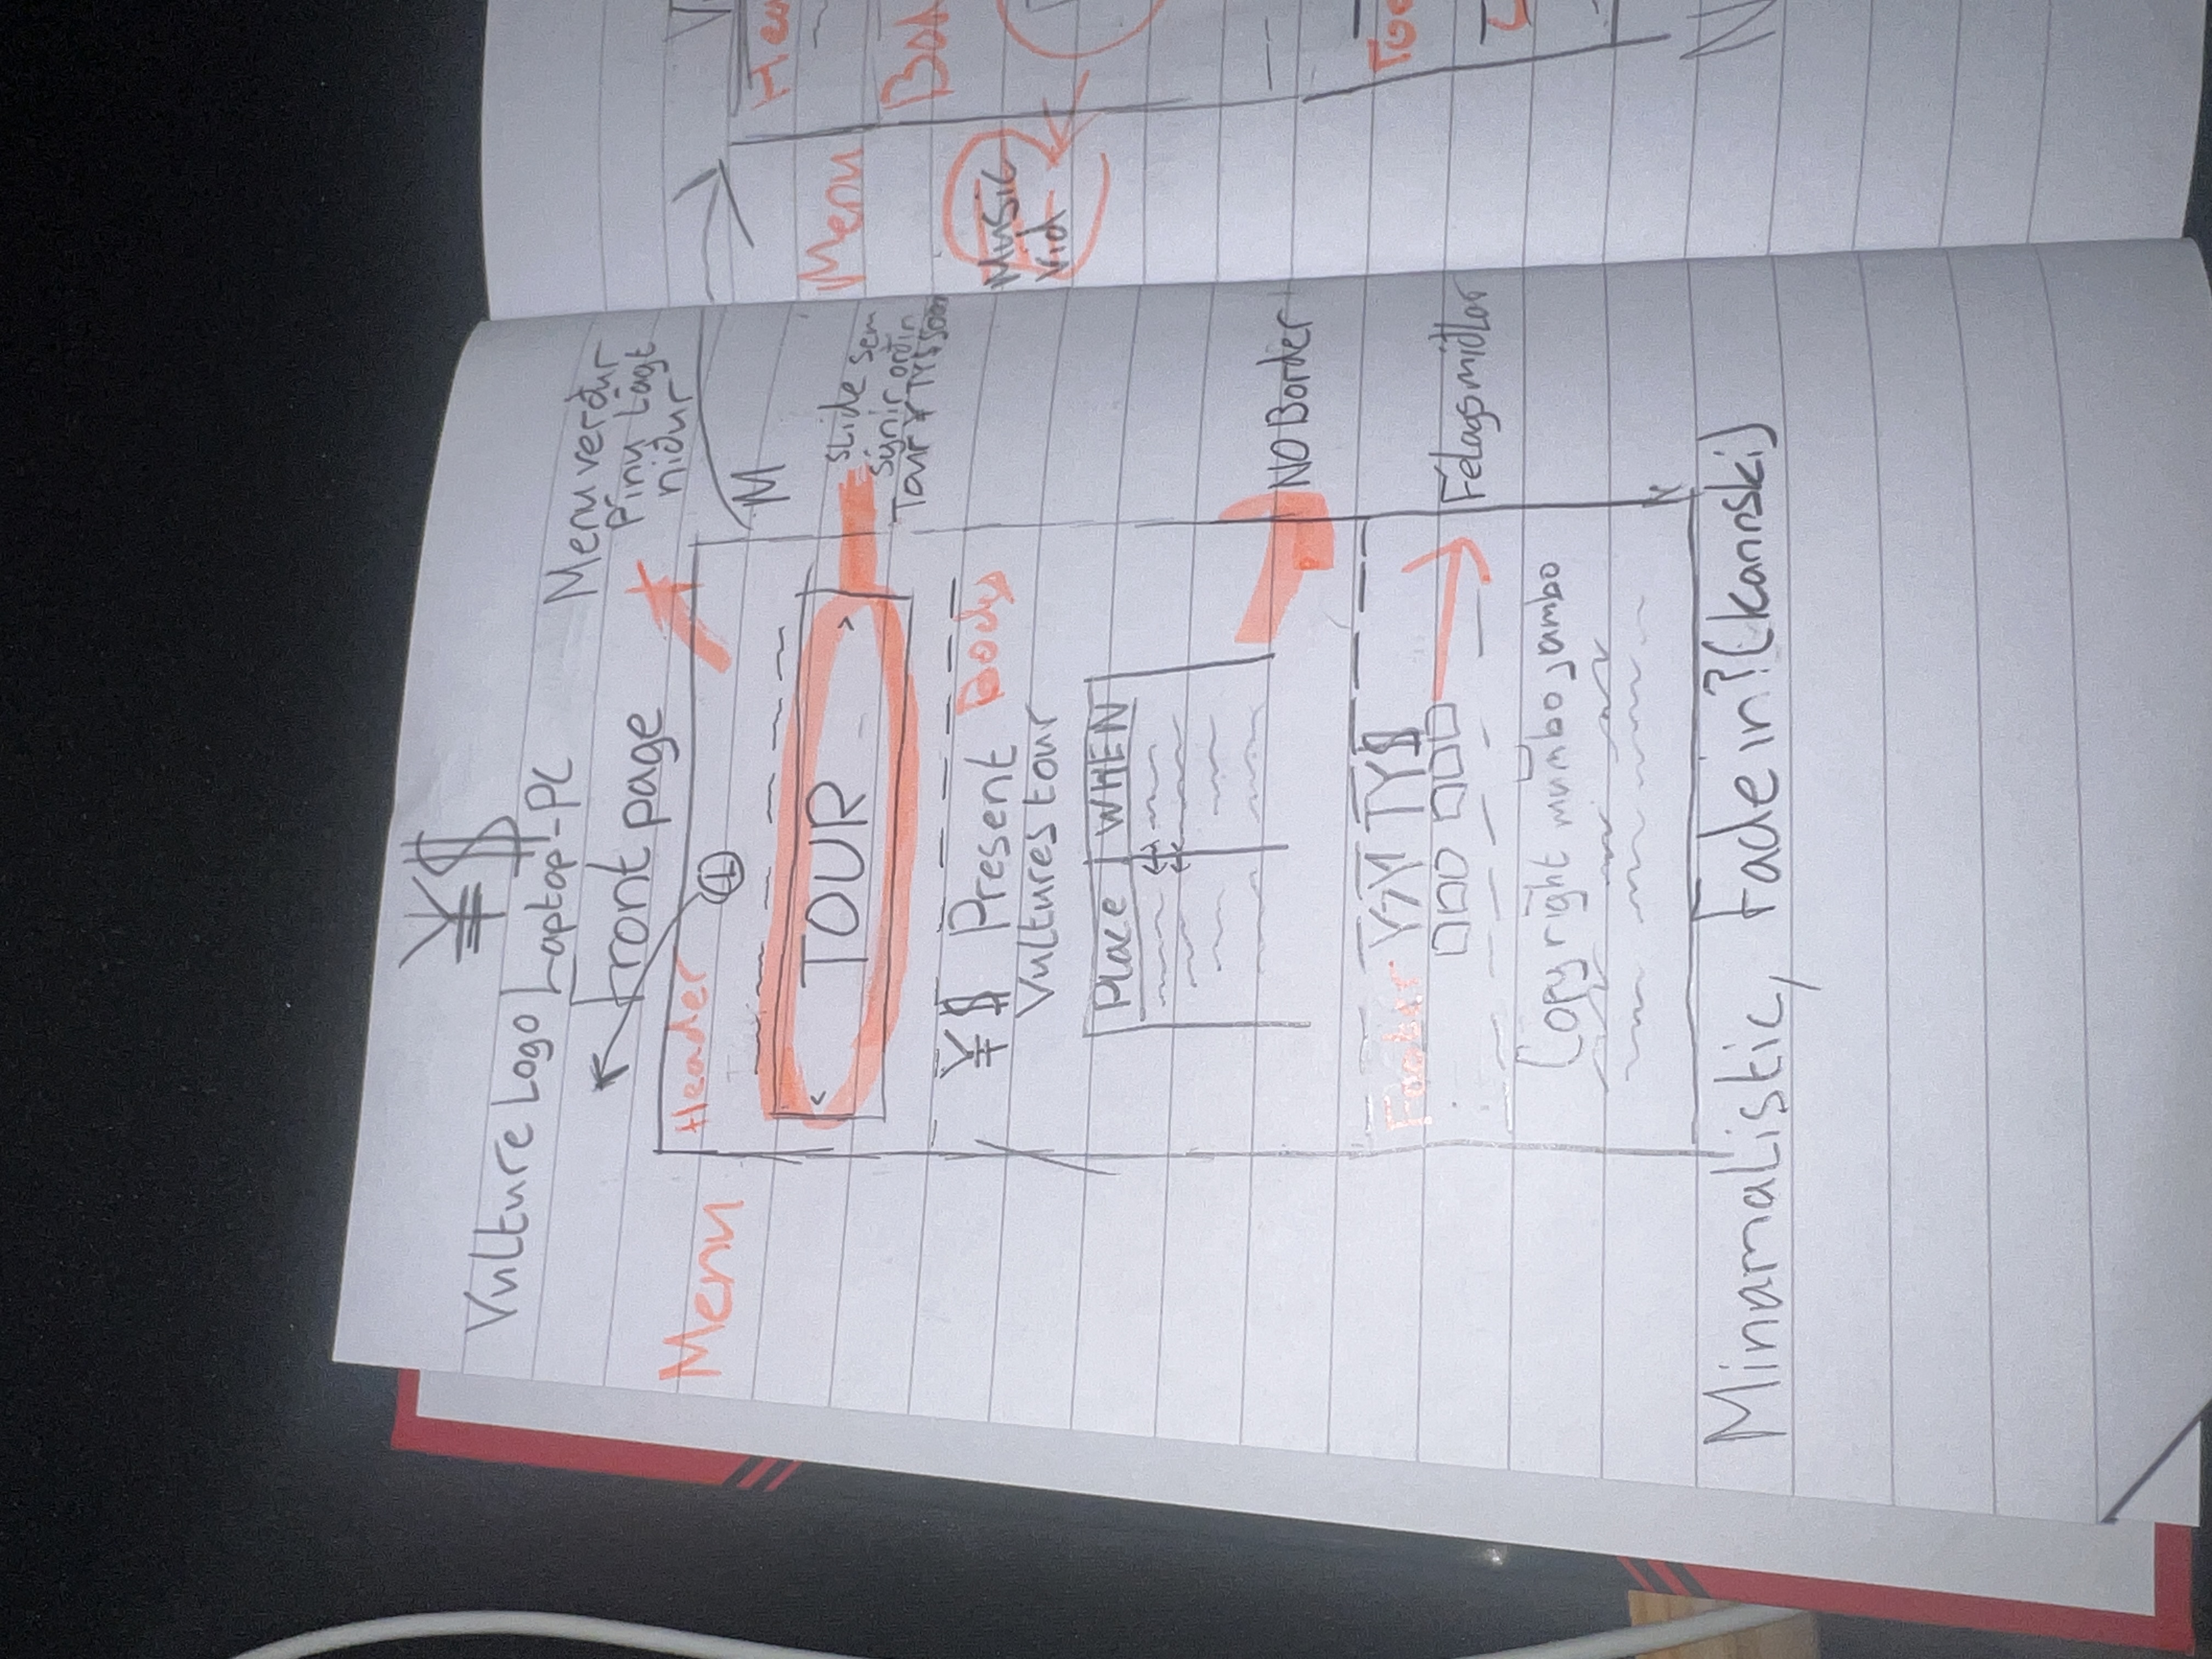 ¥$
Vulture Logo Laptop-PC
Front page
Menu verður
Pínu Lágt
niður
Menu
Header
L
M
< TOUR >
slide sem
sýnir orðin
Tour ¥ TY$ Soon
¥$ Present Body
Vultures tour
Place WHEN
NO Border
Footer YZY TY$
Félagsmiðlar
Copyright mumbo jambo
Minamalistic, Fade in? (kannski)
V
Hea
Menu
Bod
Music
Vid
Foo
N